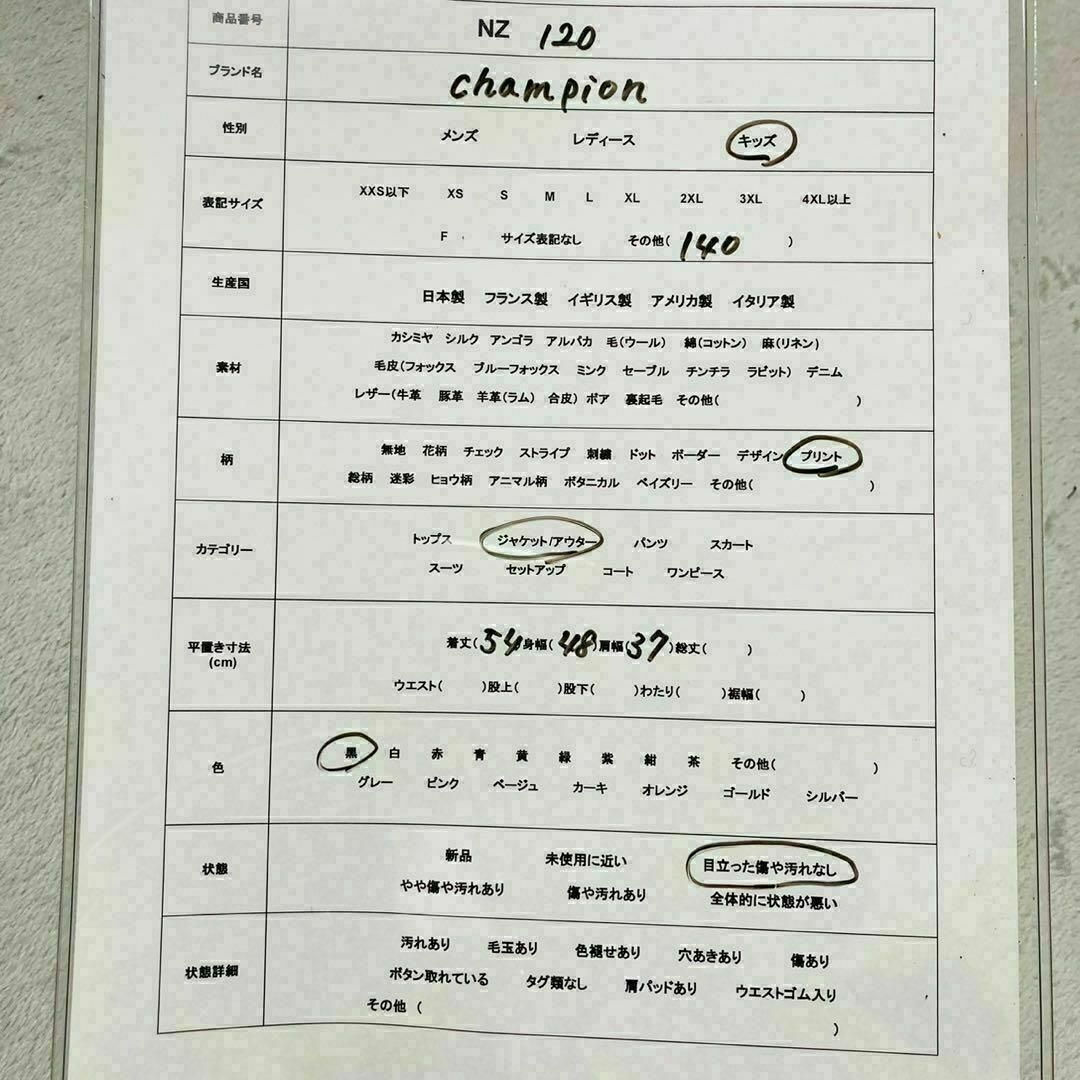 商品番号 NZ 120
ブランド名 champion
性別 メンズ レディース キッズ
表記サイズ XXS以下 XS S M L XL 2XL 3XL 4XL以上
F サイズ表記なし その他( 140 )
生産国 日本製 フランス製 イギリス製 アメリカ製 イタリア製
素材 カシミヤ シルク アンゴラ アルパカ 毛(ウール) 綿(コットン) 麻(リネン)
毛皮(フォックス ブルーフォックス ミンク セーブル チンチラ ラビット) デニム
レザー(牛革 豚革 羊革(ラム) 合皮) ボア 裏起毛 その他( )
柄 無地 花柄 チェック ストライプ 刺繍 ドット ボーダー デザイン プリント
総柄 迷彩 ヒョウ柄 アニマル柄 ボタニカル ペイズリー その他( )
カテゴリー トップス ジャケット/アウター パンツ スカート
スーツ セットアップ コート ワンピース
平置き寸法 着丈( 54 身幅( 48 )肩幅( 37 )総丈( )
(cm) ウエスト( )股上( )股下( )わたり( )裾幅( )
色 黒 白 赤 青 黄 緑 紫 紺 茶 その他( )
グレー ピンク ベージュ カーキ オレンジ ゴールド シルバー
状態 新品 未使用に近い 目立った傷や汚れなし
やや傷や汚れあり 傷や汚れあり 全体的に状態が悪い
状態詳細 汚れあり 毛玉あり 色褪せあり 穴あきあり 傷あり
ボタン取れている タグ類なし 肩パッドあり ウエストゴム入り
その他 ( )